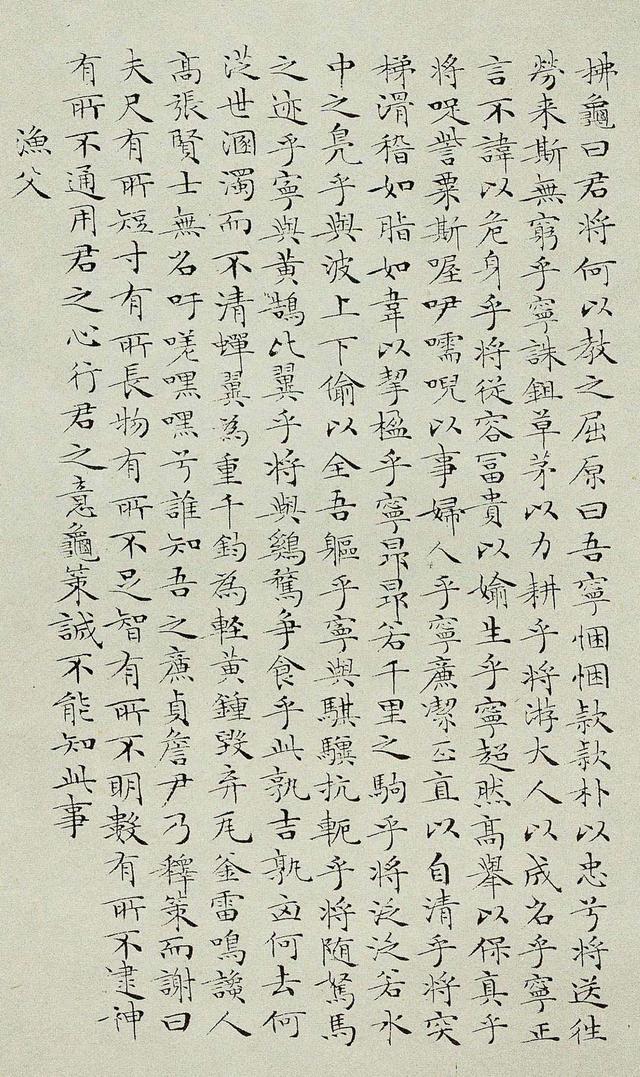 拂龜曰君将何以教之屈原曰吾寧悃悃款款朴以忠兮将送往
勞来斯無窮乎寧誅鉏草茅以力耕乎将游大人以成名乎寧正
言不諱以危身乎将従容冨貴以媮生乎寧超然髙舉以保真乎
将哫訾粟斯喔咿嚅唲以事婦人乎寧廉潔正直以自清乎将突
梯滑稽如脂如韋以挈楹乎寧昂昂若千里之駒乎将泛泛若水
中之鳬乎與波上下偷以全吾軀乎寧與騏驥抗軛乎将随駑馬
之迹乎寧與黄鵠比翼乎将與鷄鶩争食乎此孰吉孰凶何去何
従世溷濁而不清蟬翼為重千鈞為軽黄鍾毀弃瓦釜雷鳴讒人
髙張賢士無名吁嗟嘿嘿兮誰知吾之廉貞詹尹乃釋策而謝曰
夫尺有所短寸有所長物有所不足智有所不明數有所不逮神
有所不通用君之心行君之意龜策誠不能知此事
漁父